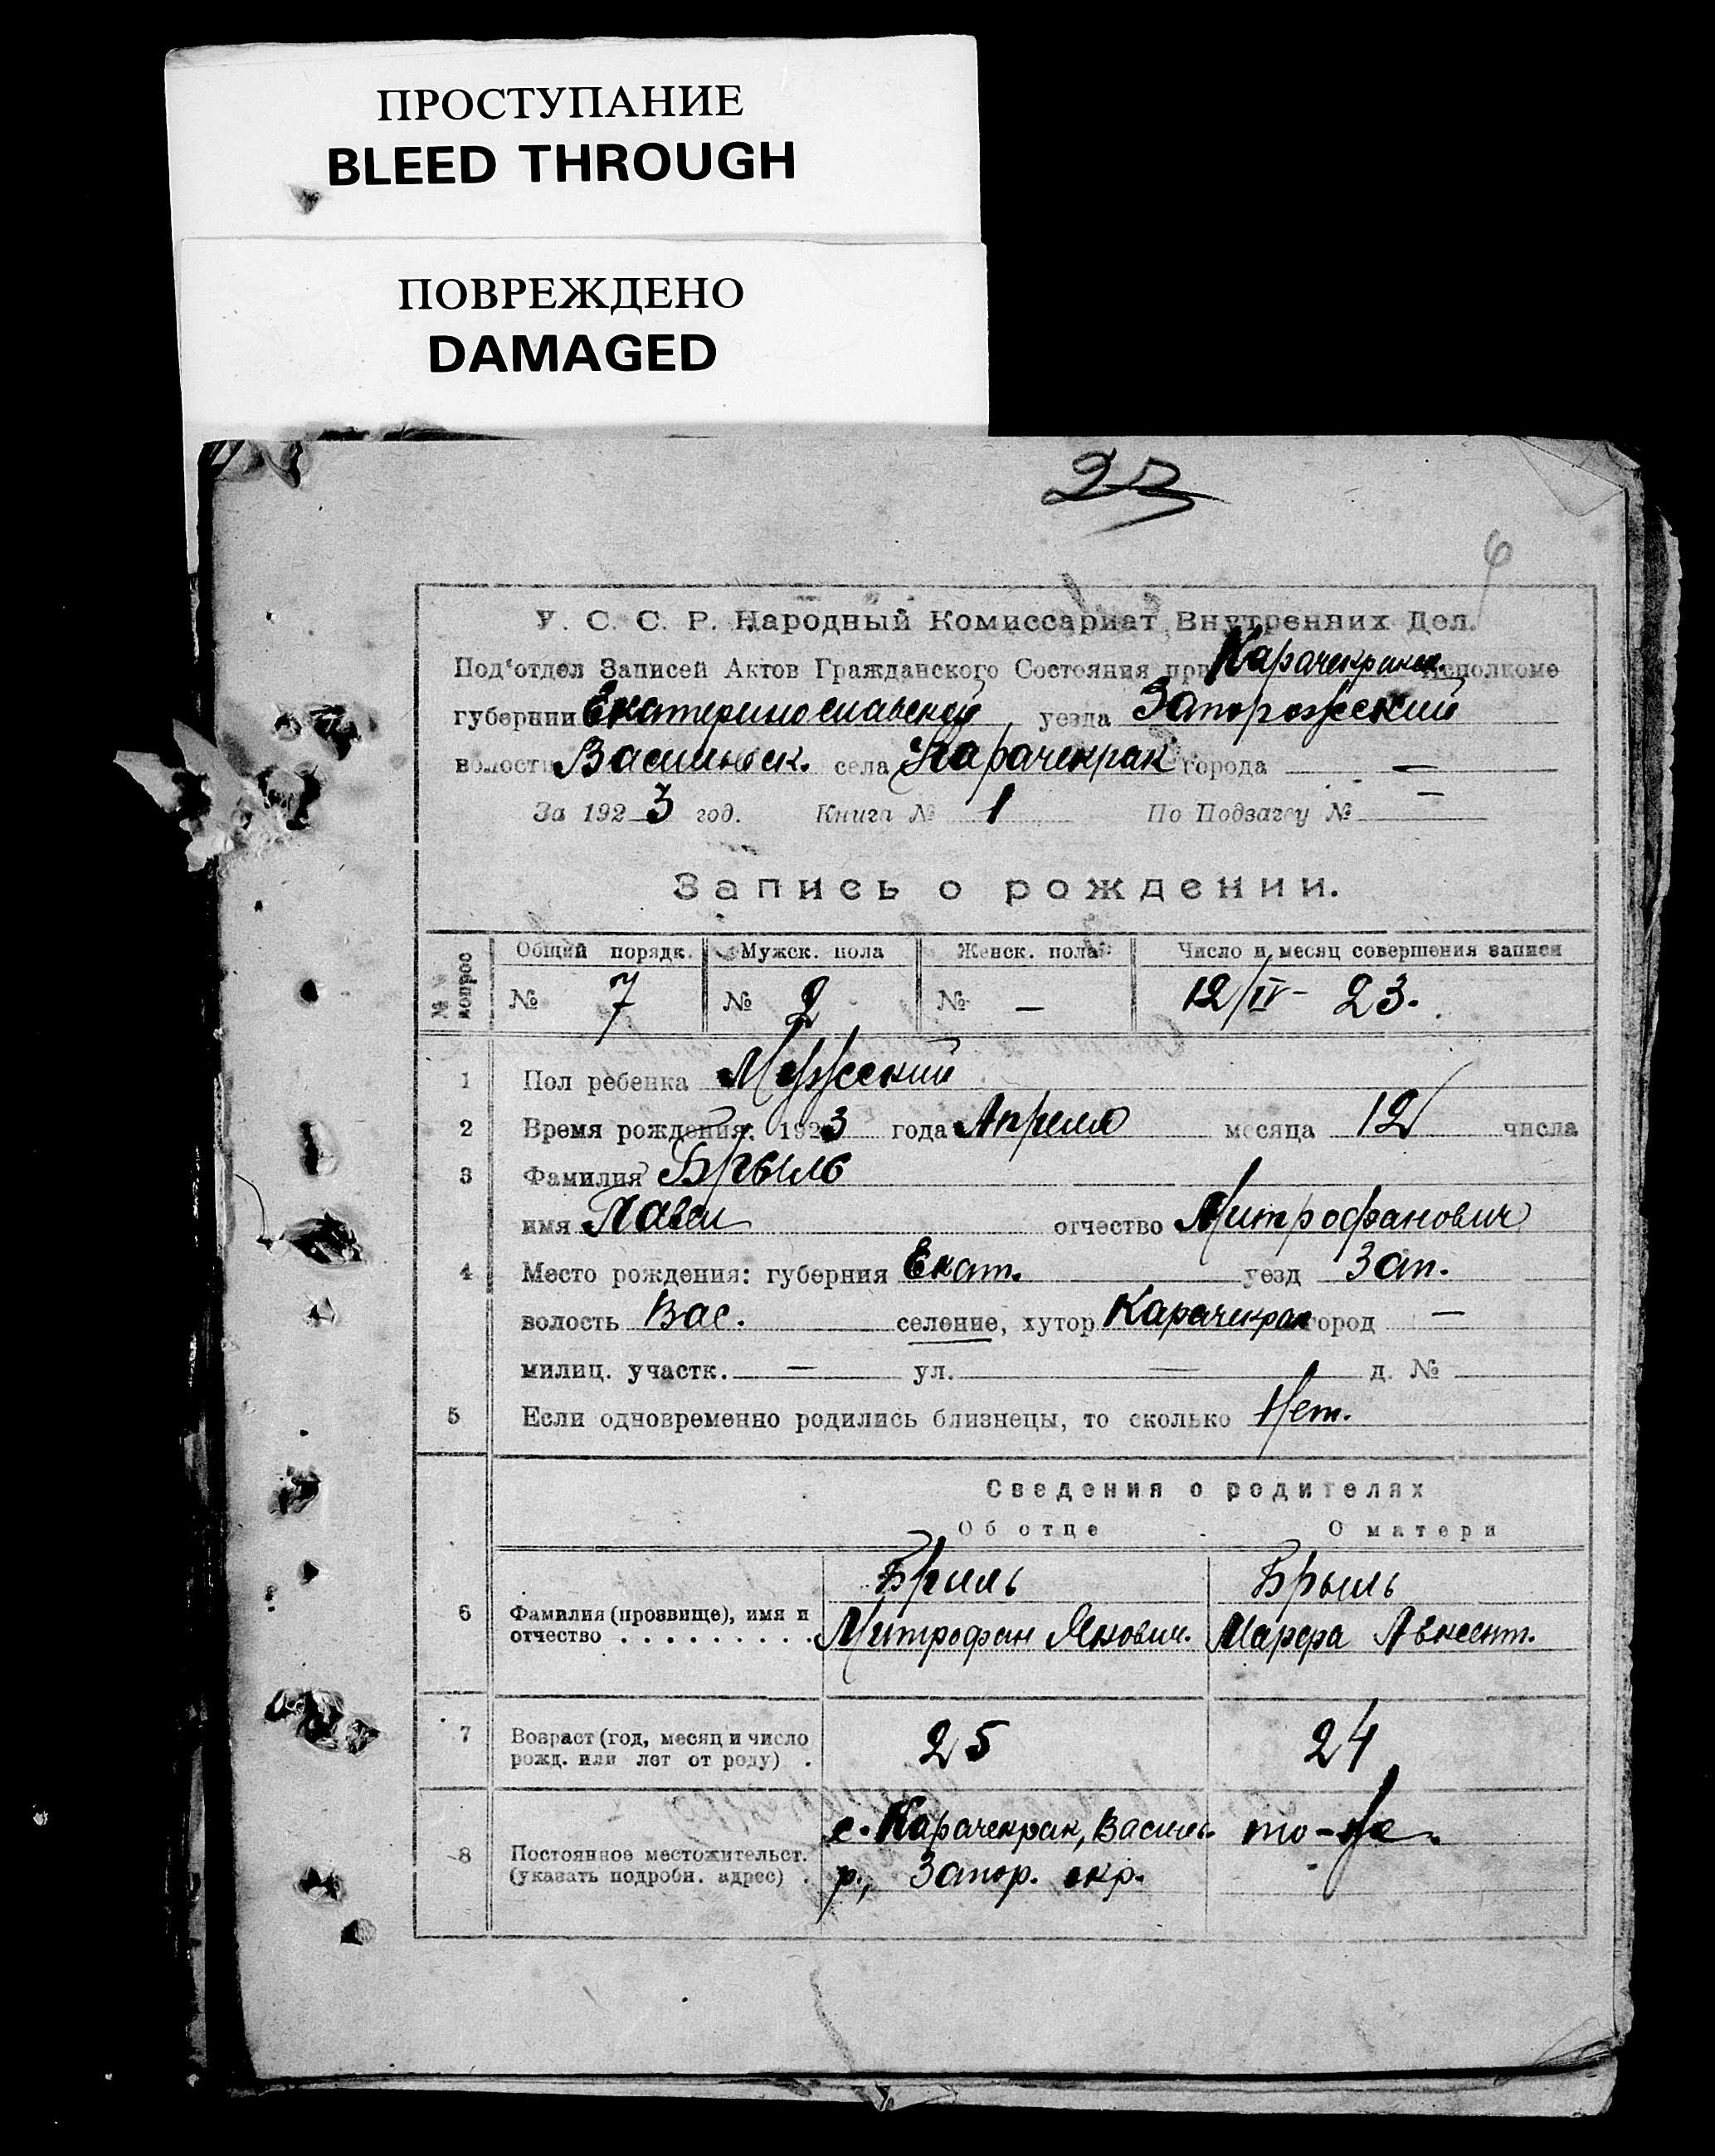 ПРОСТУПАНИЕ
BLEED THROUGH
ПОВРЕЖДЕНО
DAMAGED
6
У. С. С. Р. Народный Комиссариат Внутренних Дел.
Под'отдел Записей Актов Гражданского Состояния при Карачекракск. Исполкоме
губернии Екатеринославской уезда Запорожский
волости Васильевск. села Карачекрак города —
За 1923 год. Книга № 1 По Подзагсу № —
Запись о рождении.
№№ вопрос Общий порядк. Мужск. пола Женск. пола Число и месяц совершения записи
№ 7 № 2 № — 12/IV - 23.
1 Пол ребенка Мужский
2 Время рождения: 1923 года Апреля месяца 12 числа
3 Фамилия Брыль
имя Павел отчество Митрофанович
4 Место рождения: губерния Екат. уезд Зап.
волость Вас. селение, хутор Карачекрак город —
милиц. участк. — ул. — д. №
5 Если одновременно родились близнецы, то сколько Нет.
Сведения о родителях
Об отце О матери
Бриль Брыль
6 Фамилия (прозвище), имя и отчество . . . . . . . . . Митрофан Якович. Марфа Авксент.
7 Возраст (год, месяц и число рожд. или лет от роду) . 25 24
8 Постоянное местожительст. (указать подробн. адрес) . с. Карачекрак, Василь. то-же.
р., Запор. окр.